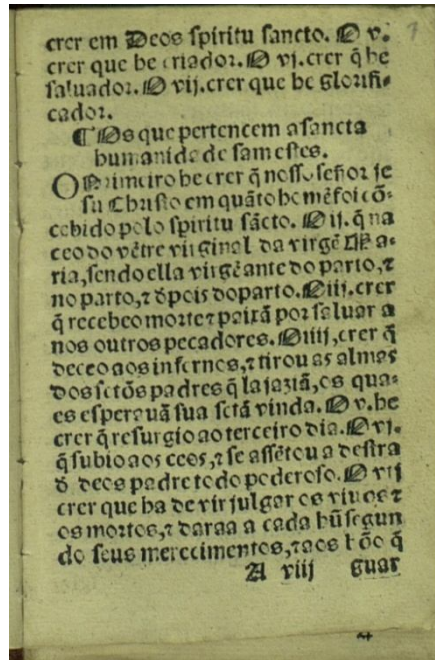 crer em Deos spiritu sancto. O v.
crer que he criador. O vj. crer q̃ he
saluador. O vij. crer que he glorifi-
cador.
¶ Os que pertencem a sancta
humanidade sam estes.
O Primeiro he crer q̃ nosso señor je
su Christo em quãto homẽ foi cõ-
cebido polo spiritu sãcto. O ij. q̃ na
ceo do vẽtre virginal da virgẽ Ma-
ria, sendo ella virgẽ ante do parto, ⁊
no parto, ⁊ d̃pois do parto. O iij. crer
q̃ recebeo morte ⁊ paixã por saluar a
nos outros pecadores. O iiij, crer q̃
deceo aos infernos, ⁊ tirou as almas
dos sctõs padres q̃ la jaziã, os qua-
es esperauã sua sctã vinda. O v. he
crer q̃ resurgio ao terceiro dia. O vj.
q̃ subio aos ceos, ⁊ se assẽtou a destra
d̃ deos padre todo poderoso. O vij
crer que ha de vir julgar os viuos ⁊
os mortos, ⁊ daraa a cada hũ segun
do seus merecimentos, ⁊ aos bõo q̃
A viij guar